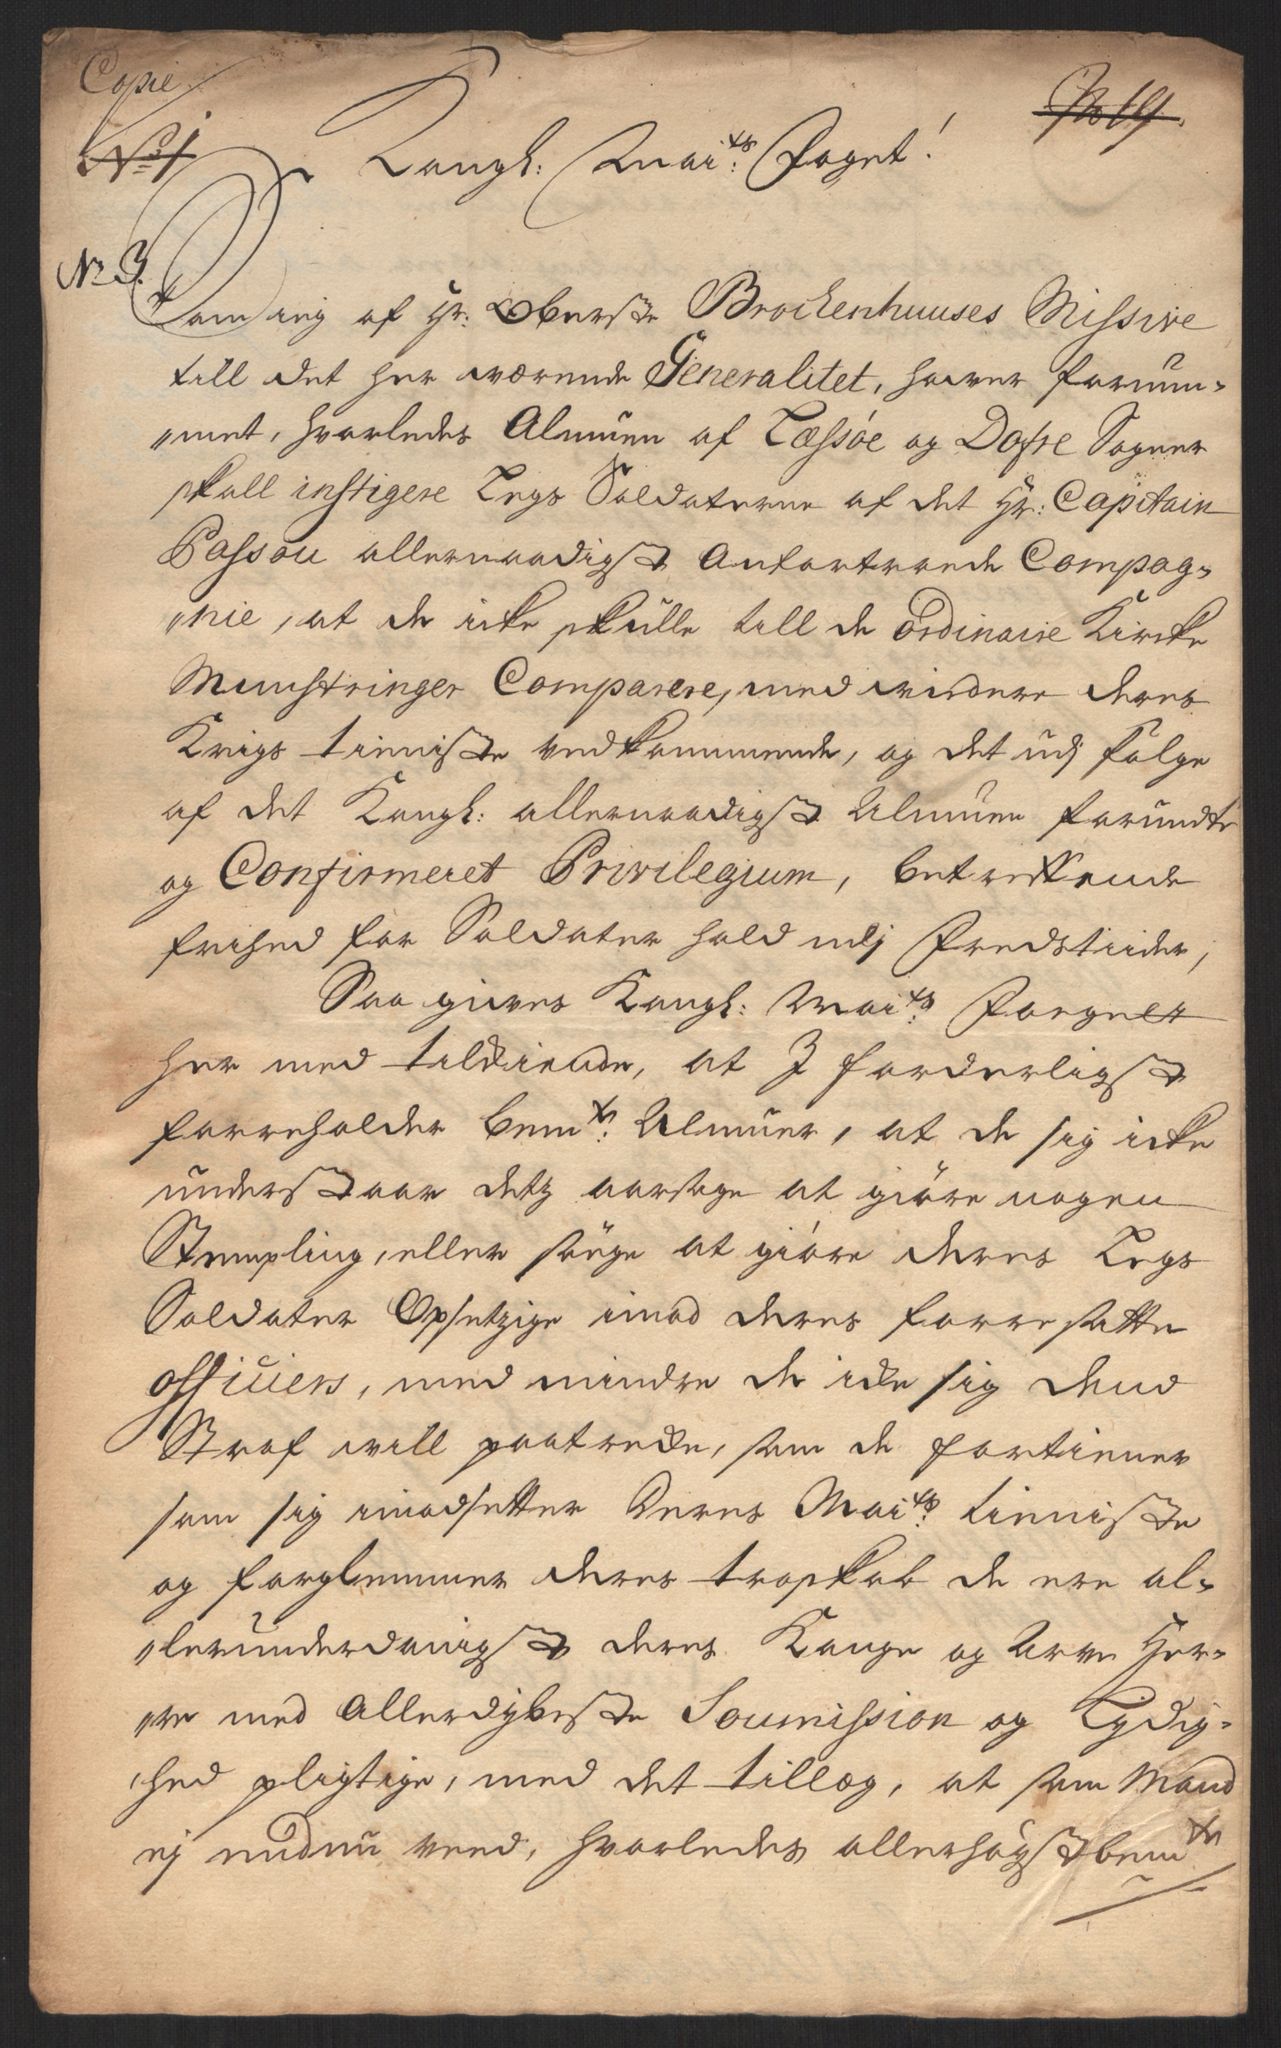 Copie
No 1
No 14.
Kongl: Mai:ts Foget!
No 3.
Som ieg af Hr: Oberste Brockenhuuses Missive
till det her værende Generalitet, haver fornum-
met, hvorledes Almuen af Læssøe og Dofre Sogner
skall instigere Legs Soldaterne af det Hr: Capitain
Passou allernaadigst Anfortroede Compag-
nie, at de icke skulle till de ordinaire Kircke
Munstringer Comparere, med videre deres
Krigs tieniste vedkommende, og det udj følge
af det Kongl: allernaadigst Almuen forundte
og Confirmeret Privilegium, betreffende
frihed for Soldater hold udj Fredstiider,
Saa gives Kongl: Mai:ts Foget
her med tilkiende, at I forderligst
forreholder bem:te Almuer, at de sig icke
understaar dets aarsage at giøre nogen
Stempling, eller søge at giøre deres Legs
Soldater Opsetzige imod deres forresatte
officiers, med mindre de icke sig dend
Straf vill paatrecke, som de fortiener
som sig imodsetter Deres Mai:ts tieniste
og forglemmer deres troskab de ere al-
lerunderdanigst deres Konge og Arve Her-
re med Allerdybeste Soumission og Lydig-
hed pligtige, med det tillæg, at som Mand
ej endnu veed, hvorledes allerhøgstbem:te